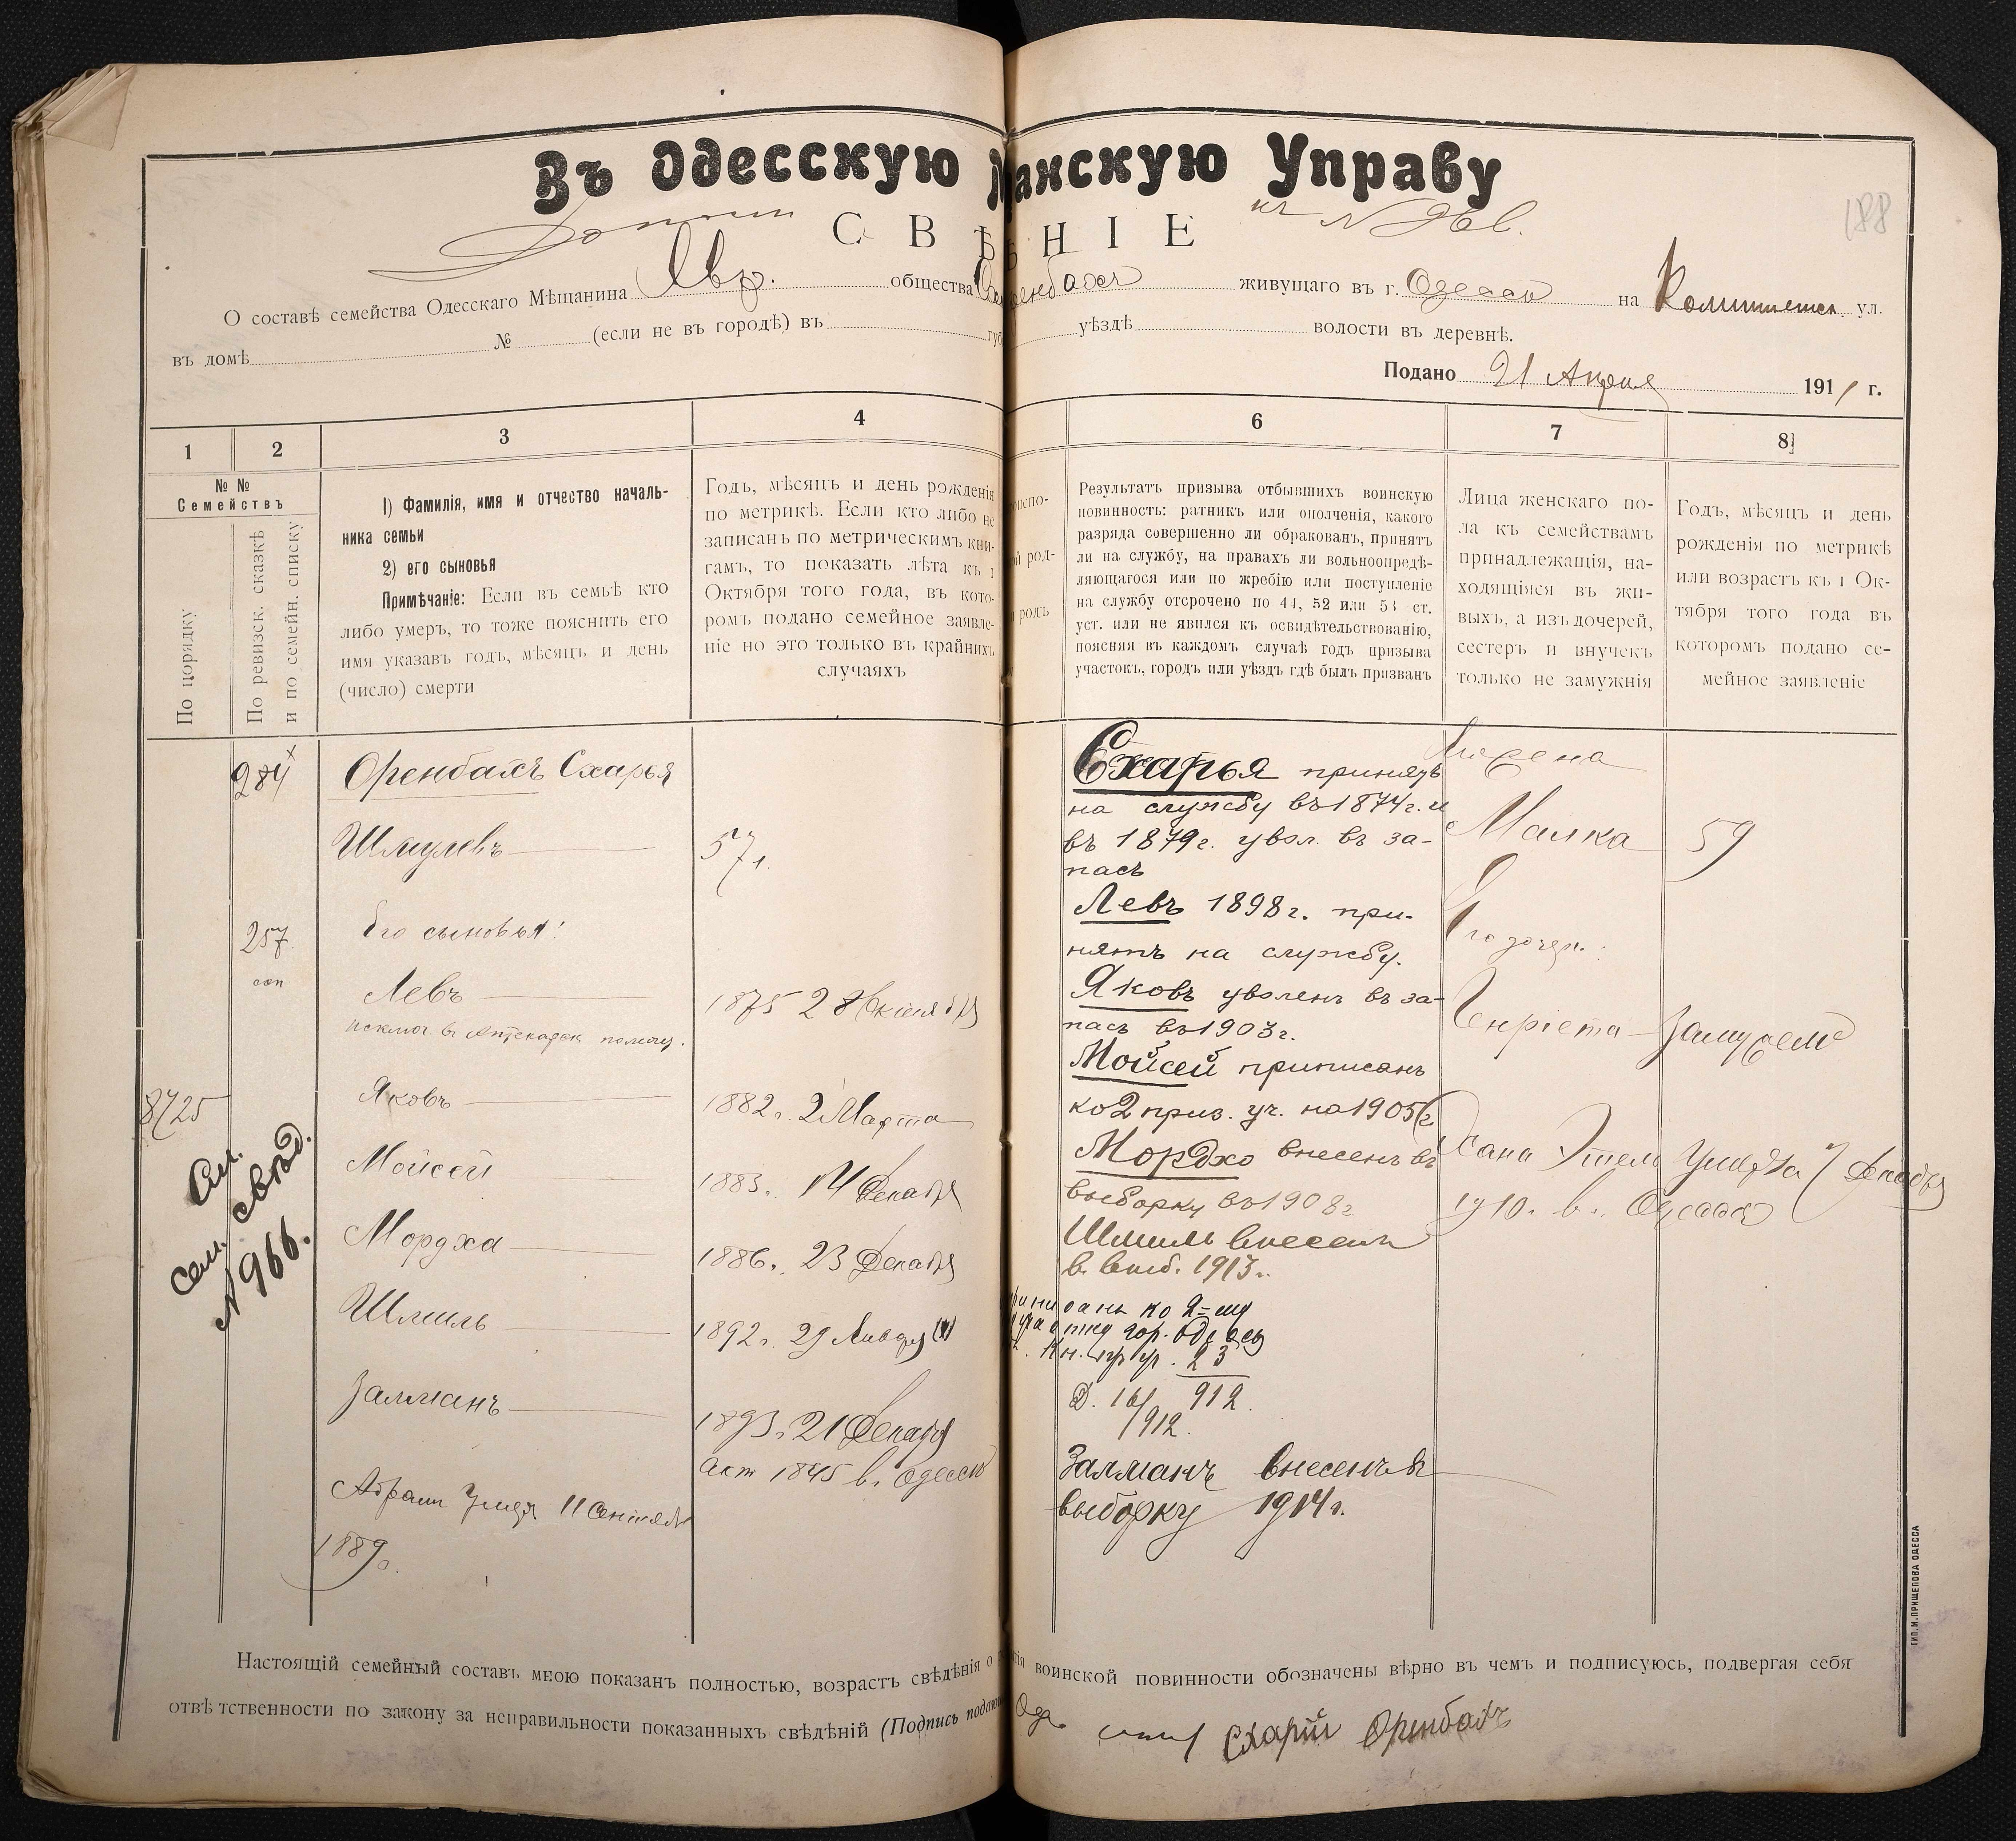 Въ Одесскую анскую Управу
188
С В Ѣ НІЕ
къ N 966.
О составѣ семейства Одесскаго Мѣщанина Евр. общества Оренбахъ живущаго въ г. Одессѣ на Комитетск. ул.
въ домѣ № (если не въ городѣ) въ губ уѣздѣ волости въ деревнѣ.
Подано 21 Апрѣля 1911 г.
1
2
3
4
6
7
8
№ №
Семействъ
По порядку
По ревизск. сказкѣ
и по семейн. списку
1) Фамилія, имя и отчество началь-
ника семьи
2) его сыновья
Примѣчаніе: Если въ семьѣ кто
либо умеръ, то тоже пояснить его
имя указавъ годъ, мѣсяцъ и день
(число) смерти
Годъ, мѣсяцъ и день рожденія
по метрикѣ. Если кто либо не
записанъ по метрическимъ кни-
гамъ, то показать лѣта къ 1
Октября того года, въ кото-
ромъ подано семейное заявле-
ніе но это только въ крайнихъ
случаяхъ
испо-
ой род-
родъ
Результатъ призыва отбывшихъ воинскую
повинность: ратникъ или ополченія, какого
разряда совершенно ли обракованъ, принятъ
ли на службу, на правахъ ли вольноопредѣ-
ляющагося или по жребію или поступленіе
на службу отсрочено по 44, 52 или 53 ст.
уст. или не явился къ освидѣтельствованію,
поясняя въ каждомъ случаѣ годъ призыва
участокъ, городъ или уѣздъ гдѣ былъ призванъ
Лица женскаго по-
ла къ семействамъ
принадлежащія, на-
ходящіяся въ жи-
выхъ, а изъ дочерей,
сестеръ и внучекъ
только не замужнія
Годъ, мѣсяцъ и день
рожденія по метрикѣ
или возрастъ къ 1 Ок-
тября того года въ
которомъ подано се-
мейное заявленіе
284
257
сп
8725
См.
свѣд.
сем.
N 966.
Оренбахъ Схарья
Шмулевъ
Его сыновья:
Левъ
исключ. в. Аптекарск помощ.
Яковъ
Мойсей
Мордха
Шмиль
Залманъ
Абрамъ умеръ 11 Сентяб
1889.
57 л.
1875 28 Октября
1882 г. 2 Марта
1883. 14 Декабря
1886. 23 Декабря
1892 г. 29 Января
1893. 21 Декабря
Акт 1845 в. Одессѣ
Схарья принятъ
на службу въ 1874 г. и
въ 1879 г. увол. въ за-
пасъ
Левъ 1898 г. при-
нятъ на службу.
Яковъ уволенъ въ за-
пасъ въ 1903 г.
Мойсей приписанъ
ко 2 приз. уч. на 1905 г.
Мордхо внесенъ въ
выборку въ 1908 г
Шмиль внесенъ
в. выб. 1913 г.
ко 2-му
гор. Одессы
23
912.
Д. 16/912.
Залманъ внесенъ в
выборку 1914 г.
Жена
Малка
Его дочери:
Генріета
Хана Этель умерла 7 Декабря
1910. в. Одессѣ
59
Замужемъ
Настоящій семейный составъ мною показанъ полностью, возрастъ свѣдѣнія о нія воинской повинности обозначены вѣрно въ чемъ и подписуюсь, подвергая себя
отвѣтственности по закону за неправильности показанныхъ свѣдѣній (Подпись подаю Схарій Оренбахъ
ТИП. М. ПРИЩЕПОВА ОДЕССА